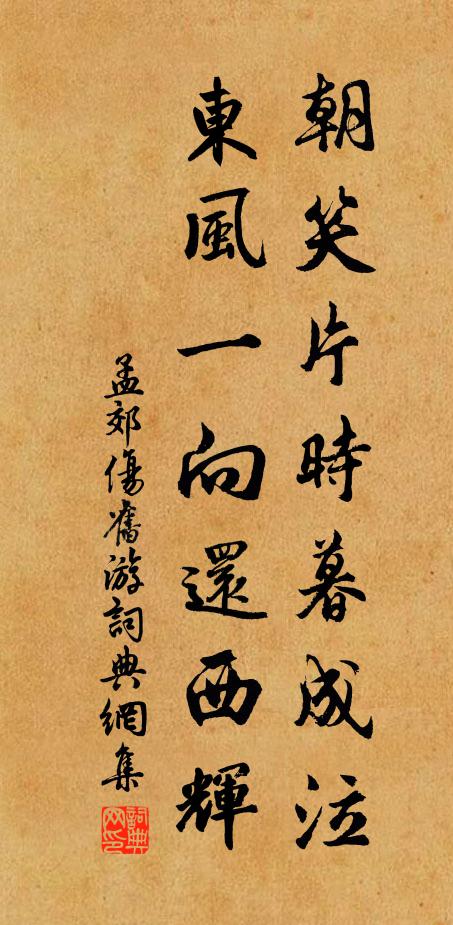 朝笑片時暮成泣
東風一向還西輝
孟郊傷舊游詞典網集
詞典网印